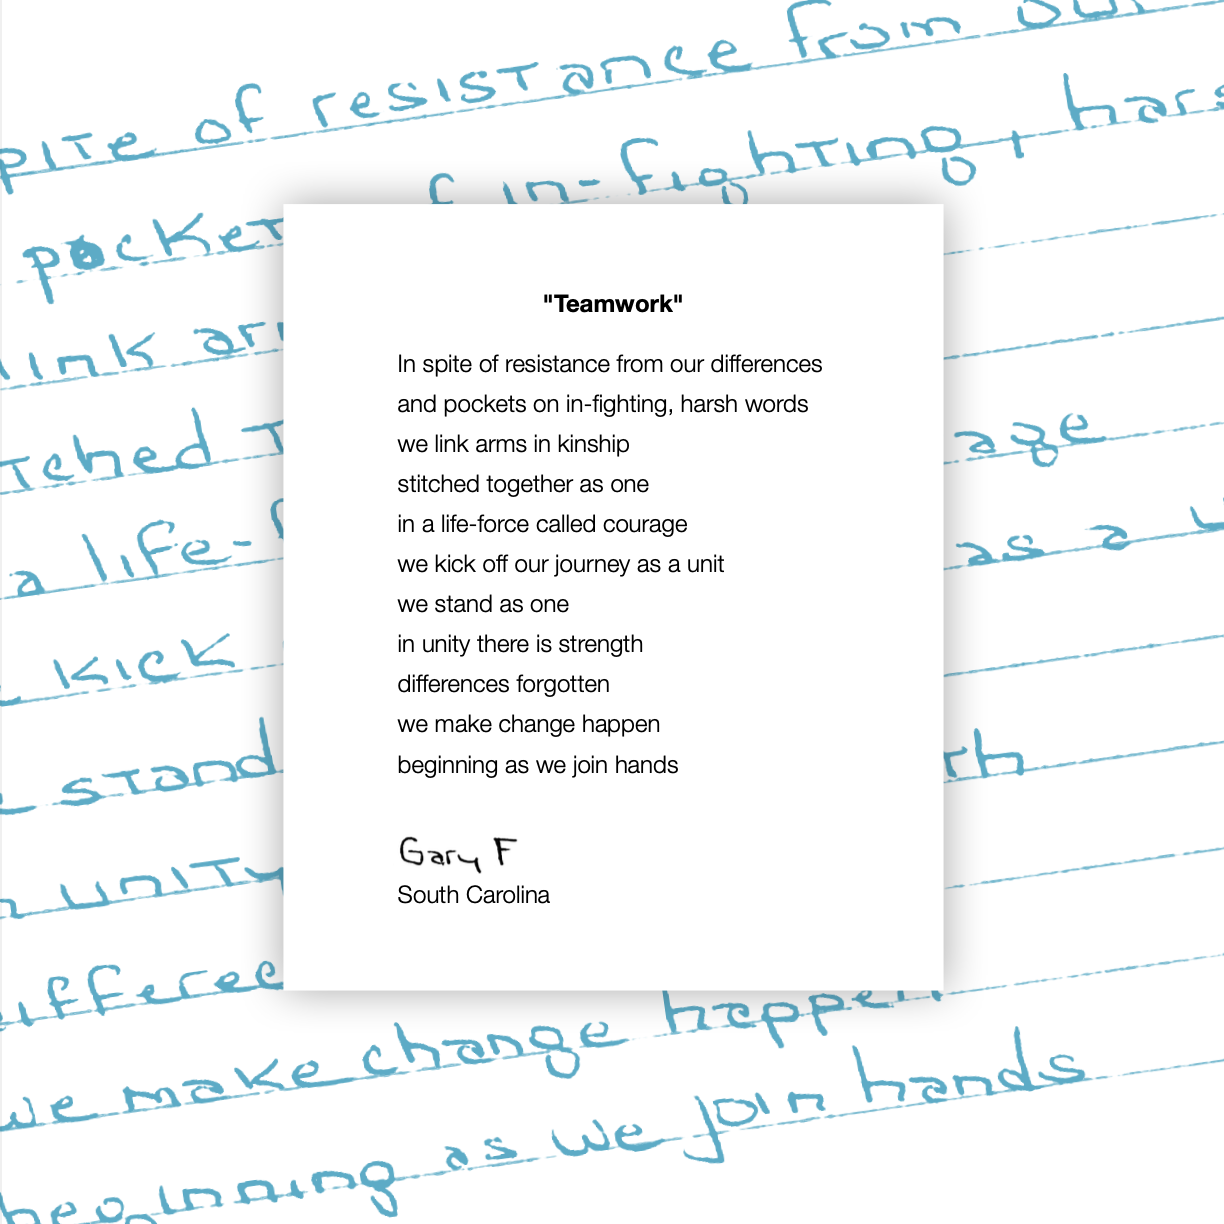 pite of resistance from our
pocket f in-fighting, hars
"Teamwork"
In spite of resistance from our differences
and pockets on in-fighting, harsh words
we link arms in kinship
stitched together as one
in a life-force called courage
we kick off our journey as a unit
we stand as one
in unity there is strength
differences forgotten
we make change happen
beginning as we join hands
Gary F
South Carolina
link ar
tched t age
a life-f as a u
kick
stand th
unity
ifferec
we make change happen
beginning as we join hands